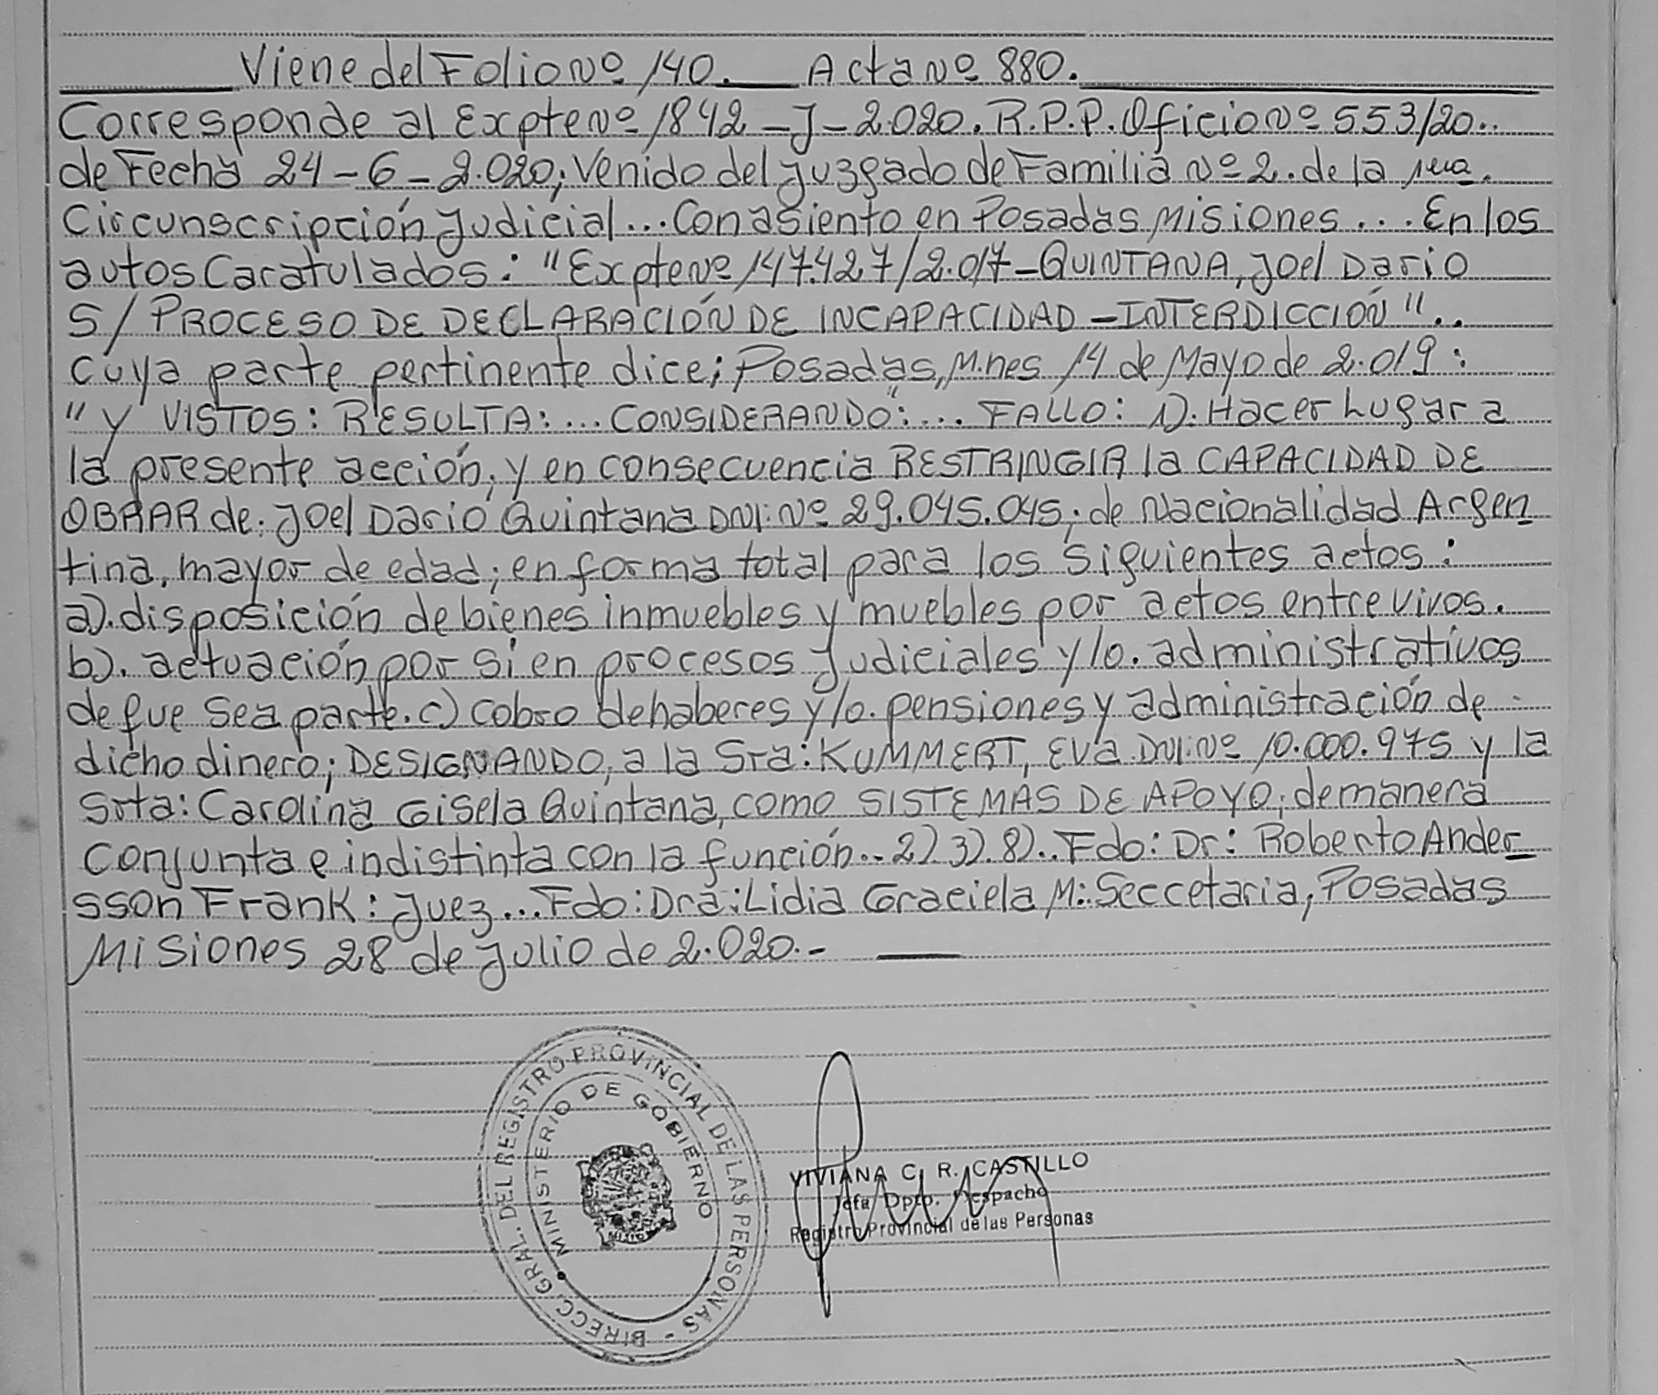 Viene del Folio Nº 140. Acta Nº 880.
Corresponde al Expte Nº 1842-J-2.020. R.P.P. Oficio Nº 553/20..
de Fecha 24-6-2.020; Venido del Juzgado de Familia Nº 2. de la 1era.
Circunscripción Judicial... Con asiento en Posadas Misiones... En los
autos Caratulados: "Expte Nº 147.427/2.017-QUINTANA, Joel Dario
S/ PROCESO DE DECLARACIÓN DE INCAPACIDAD-INTERDICCIÓN"..
cuya parte pertinente dice; Posadas, M.nes 14 de Mayo de 2.019:
"Y VISTOS: RESULTA:... CONSIDERANDO":... FALLO: 1). Hacer Lugar a
la presente acción, y en consecuencia RESTRINGIR la CAPACIDAD DE
OBRAR de; Joel Dario Quintana DNI: Nº 29.045.045; de Nacionalidad Argen
tina, mayor de edad; en forma total para los siguientes actos:
a). disposición de bienes inmuebles y muebles por actos entre vivos.
b). actuación por si en procesos Judiciales y/o. administrativos
de que sea parte. c) cobro de haberes y/o. pensiones y administración de
dicho dinero; DESIGNANDO, a la Sra: KUMMERT, Eva DNI: Nº 10.000.975 y la
Srta: Carolina Gisela Quintana, como SISTEMAS DE APOYO; de manera
conjunta e indistinta con la función.. 2) 3). 8).. Fdo: Dr: Roberto Ander
sson Frank: Juez... Fdo: Dra: Lidia Graciela M: Secretaria, Posadas
Misiones 28 de Julio de 2.020.-
DIRECC. GRAL. DEL REGISTRO PROVINCIAL DE LAS PERSONAS -
MINISTERIO DE GOBIERNO
VIVIANA C. R. CASTILLO
Jefa Dpto. Despacho
Registro Provincial de las Personas